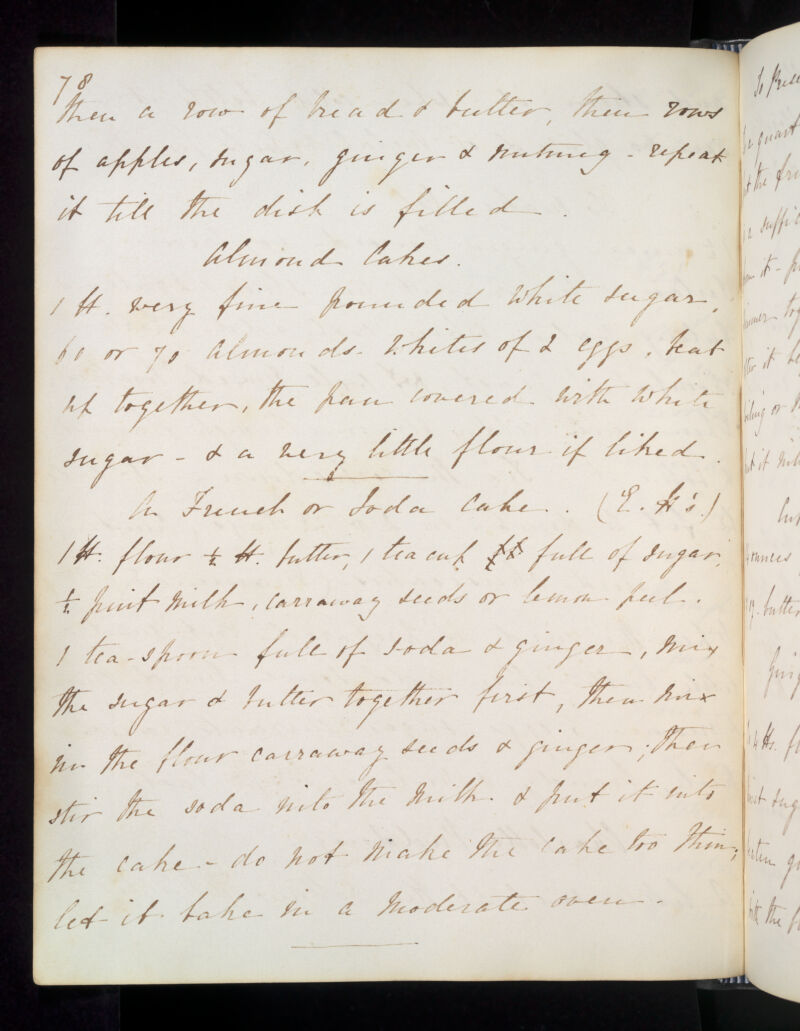 78
then a row of bread & butter, then rows
of apples, sugar, ginger & nutmeg - repeat
it till the dish is filled.
Almond Cakes.
1 lb. very fine pounded white sugar,
60 or 70 Almonds. Whites of 2 eggs, beat
up together, the pan covered with white
sugar - & a very little flour if liked.
A French or Soda Cake. (E. H's.)
1 lb. flour ½ lb. butter, 1 tea cup full of sugar,
½ pint milk, carraway seeds or lemon peel.
1 tea-spoon full of soda & ginger, mix
the sugar & butter together first, then mix
in the flour carraway seeds & ginger, then
stir the soda into the milk & put it into
the cake - do not make the cake too thin;
let it bake in a moderate oven.